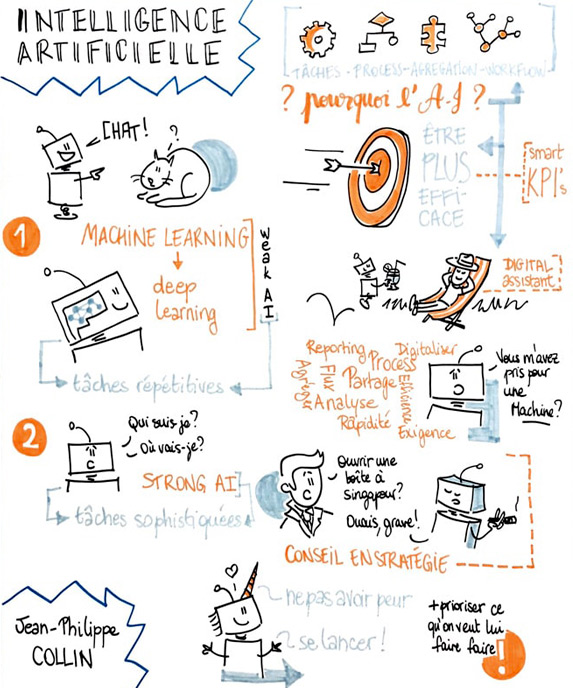 INTELLIGENCE
ARTIFICIELLE
TÂCHES - PROCESS - AGREGATION - WORKFLOW
? pourquoi l'A-I ?
CHAT!
?
ÊTRE
PLUS
EFFI-
CACE
smart
KPI's
1
MACHINE LEARNING
deep
learning
weak AI
tâches répétitives
DIGITAL
assistant
Reporting
Digitaliser
Process
Agrégé
Flux
Partage
Efficience
Analyse
Rapidité
Exigence
Vous m'avez
pris pour
une
Machine?
2
Qui suis-je?
Où vais-je?
STRONG AI
tâches sophistiquées
Ouvrir une
boîte à
singapour?
Ouais, grave!
CONSEIL EN STRATÉGIE
Jean-Philippe
COLLIN
ne pas avoir peur
se lancer!
+ prioriser ce
qu'on veut lui
faire faire
!